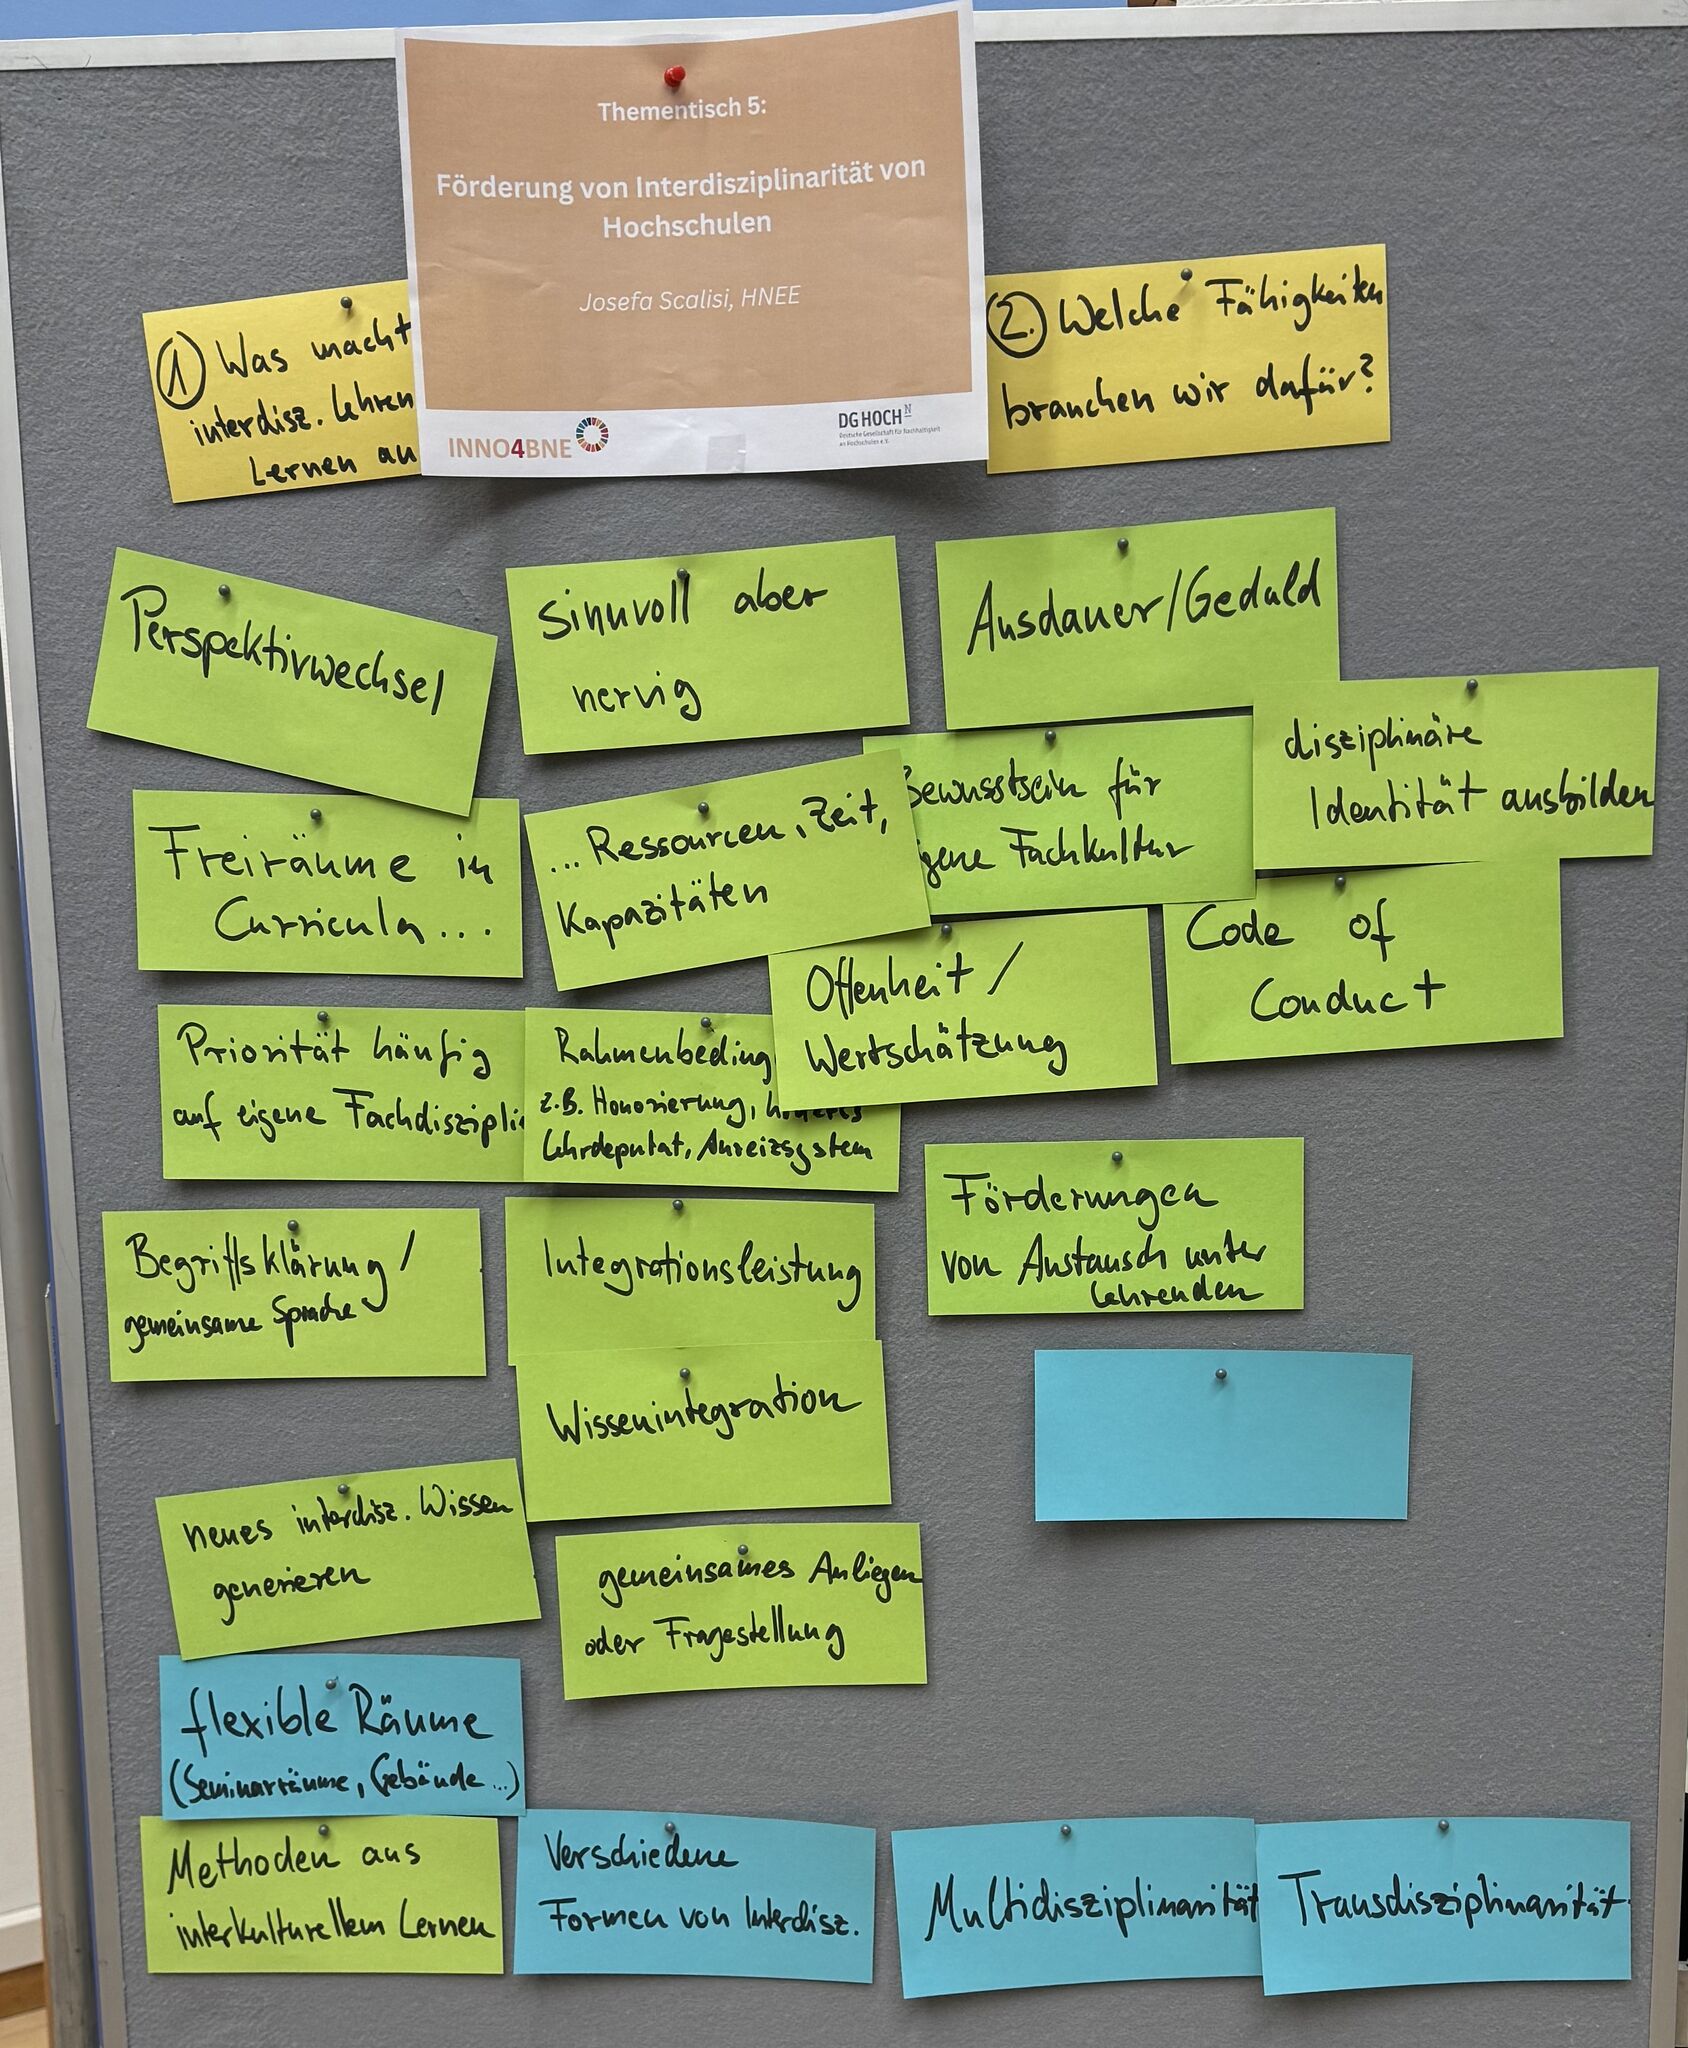 Thementisch 5:
Förderung von Interdisziplinarität von
Hochschulen
Josefa Scalisi, HNEE
INNO4BNE
DG HOCH N
Deutsche Gesellschaft für Nachhaltigkeit
an Hochschulen e.V.
1 Was macht
interdisz. Lehren
Lernen au
2. Welche Fähigkeiten
brauchen wir dafür?
Perspektivwechsel
Sinnvoll aber
nervig
Ausdauer/Geduld
Freiräume in
Curricula...
... Ressourcen, Zeit,
Kapazitäten
Bewusstsein für
igene Fachkultur
disziplinäre
Identität ausbilden
Offenheit /
Wertschätzung
Code of
Conduct
Priorität häufig
auf eigene Fachdiszipli
Rahmenbeding
z.B. Honorierung,
Lehrdeputat, Anreizsystem
Begriffsklärung/
gemeinsame Sprache
Integrationsleistung
Förderungen
von Austausch unter
Lehrenden
Wissenintegration
neues interdisz. Wissen
generieren
gemeinsames Anliegen
oder Fragestellung
flexible Räume
(Seminarräume, Gebäude...)
Methoden aus
interkulturellem Lernen
Verschiedene
Formen von Interdisz.
Multidisziplinarität
Transdisziplinarität